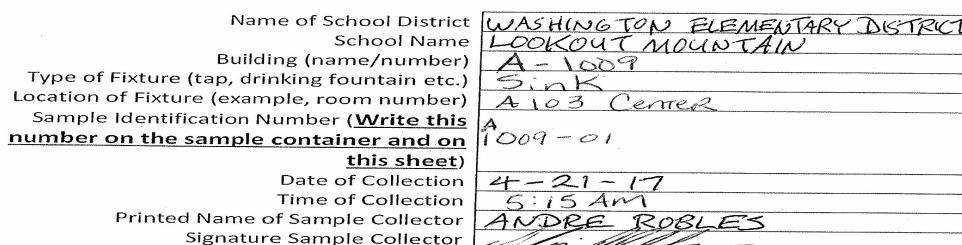 Name of School District WASHINGTON ELEMENTARY DISTRICT
School Name LOOKOUT MOUNTAIN
Building (name/number) A-1009
Type of Fixture (tap, drinking fountain etc.) Sink
Location of Fixture (example, room number) A103 Center
Sample Identification Number (Write this
number on the sample container and on A1009-01
this sheet)
Date of Collection 4-21-17
Time of Collection 5:15 AM
Printed Name of Sample Collector ANDRE ROBLES
Signature Sample Collector